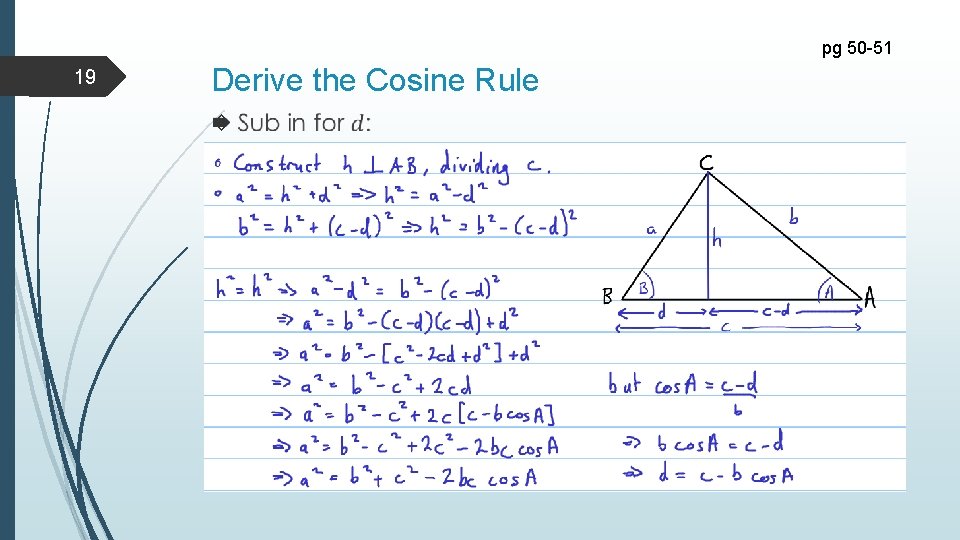 pg 50-51
19
Derive the Cosine Rule
Sub in for d:
Construct h ⊥ AB, dividing c.
a² = h² + d² => h² = a² - d²
b² = h² + (c-d)² => h² = b² - (c-d)²
h² = h² => a² - d² = b² - (c-d)²
=> a² = b² - (c-d)(c-d) + d²
=> a² = b² - [c² - 2cd + d²] + d²
=> a² = b² - c² + 2cd
=> a² = b² - c² + 2c[c - b cos A]
=> a² = b² - c² + 2c² - 2bc cos A
=> a² = b² + c² - 2bc cos A
C
a
h
b
B
B
A
A
d
c-d
c
but cos A = c-d
b
=> b cos A = c-d
=> d = c - b cos A